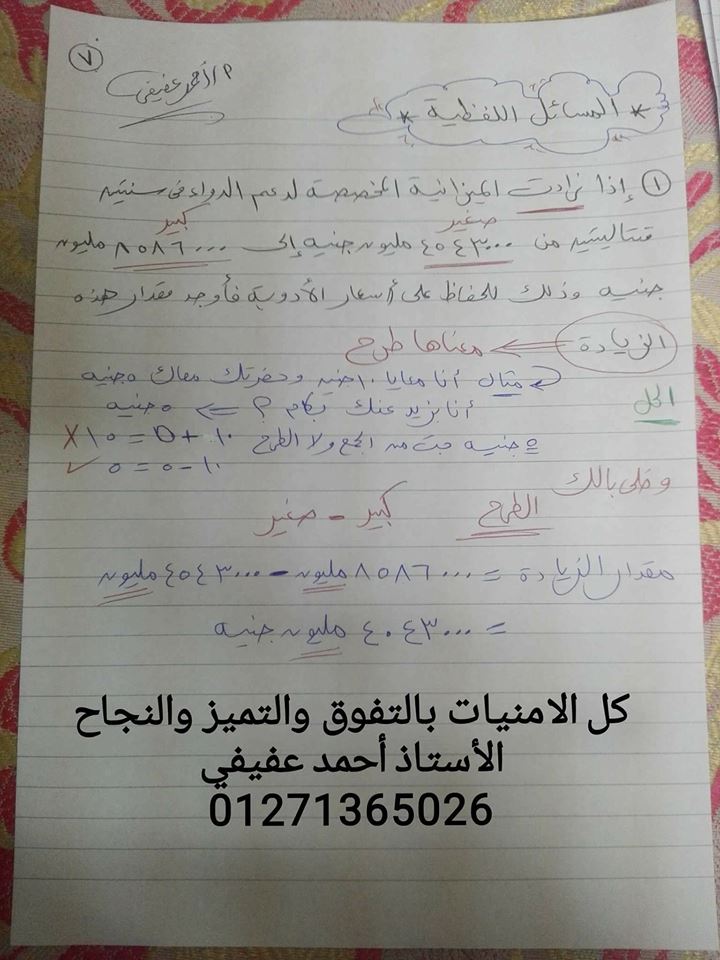 ٧
م/أحمد عفيفي
* المسائل اللفظية *
١ إذا زادت الميزانية المخصصة لدعم الدواء فى سنتين
صغير كبير
متتاليتين من ٤٥٤٣٠٠٠ مليون جنيه إلى ٨٥٨٦٠٠٠ مليون
جنيه وذلك للحفاظ على أسعار الأدوية فأوجد مقدار هذه
الزيادة ← معناها طرح
مثال أنا معايا ١٠ جنيه وحضرتك معاك ٥ جنيه
الحل
أنا بزيد عنك بكام ؟ ⇐ ٥ جنيه
٥ جنيه جت من الجمع ولا الطرح ١٠ + ٥ = ١٥ X
١٠ - ٥ = ٥ ✓
وخلى بالك
الطرح كبير - صغير
مقدار الزيادة = ٨٥٨٦٠٠٠ مليون - ٤٥٤٣٠٠٠ مليون
= ٤٠٤٣٠٠٠ مليون جنيه
كل الامنيات بالتفوق والتميز والنجاح
الأستاذ أحمد عفيفي
01271365026